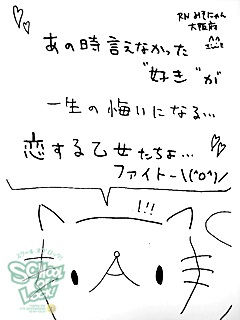 RN みそにゃん
大阪府
あの時言えなかった
"好き"が
一生の悔いになる…
恋する乙女たちよ…
ファイトー\(^o^)/
!!!
スクール オブ ロック!
SCHOOL OF LOCK!